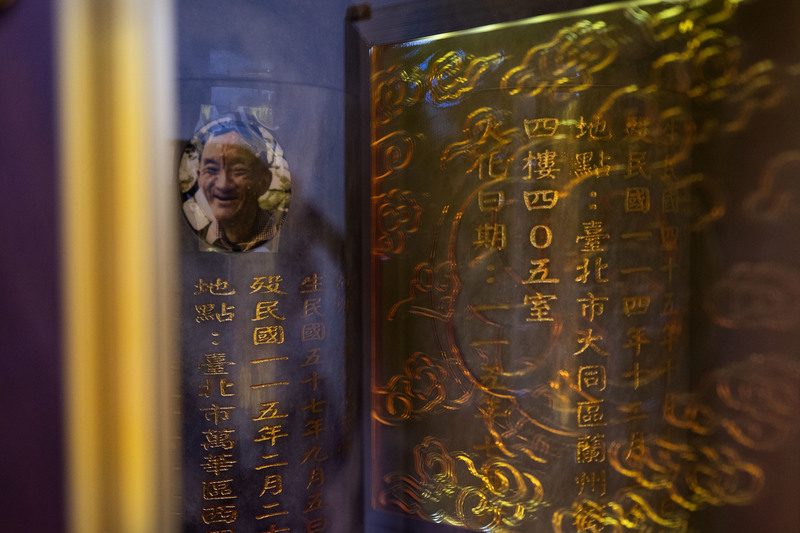 民國四十五年十
歿民國一一四年十二月
地點：臺北市大同區蘭州
四樓四０五室
火化日期：一一五年
生民國五十七年九月五日
歿民國一一五年二月二
地點：臺北市萬華區西